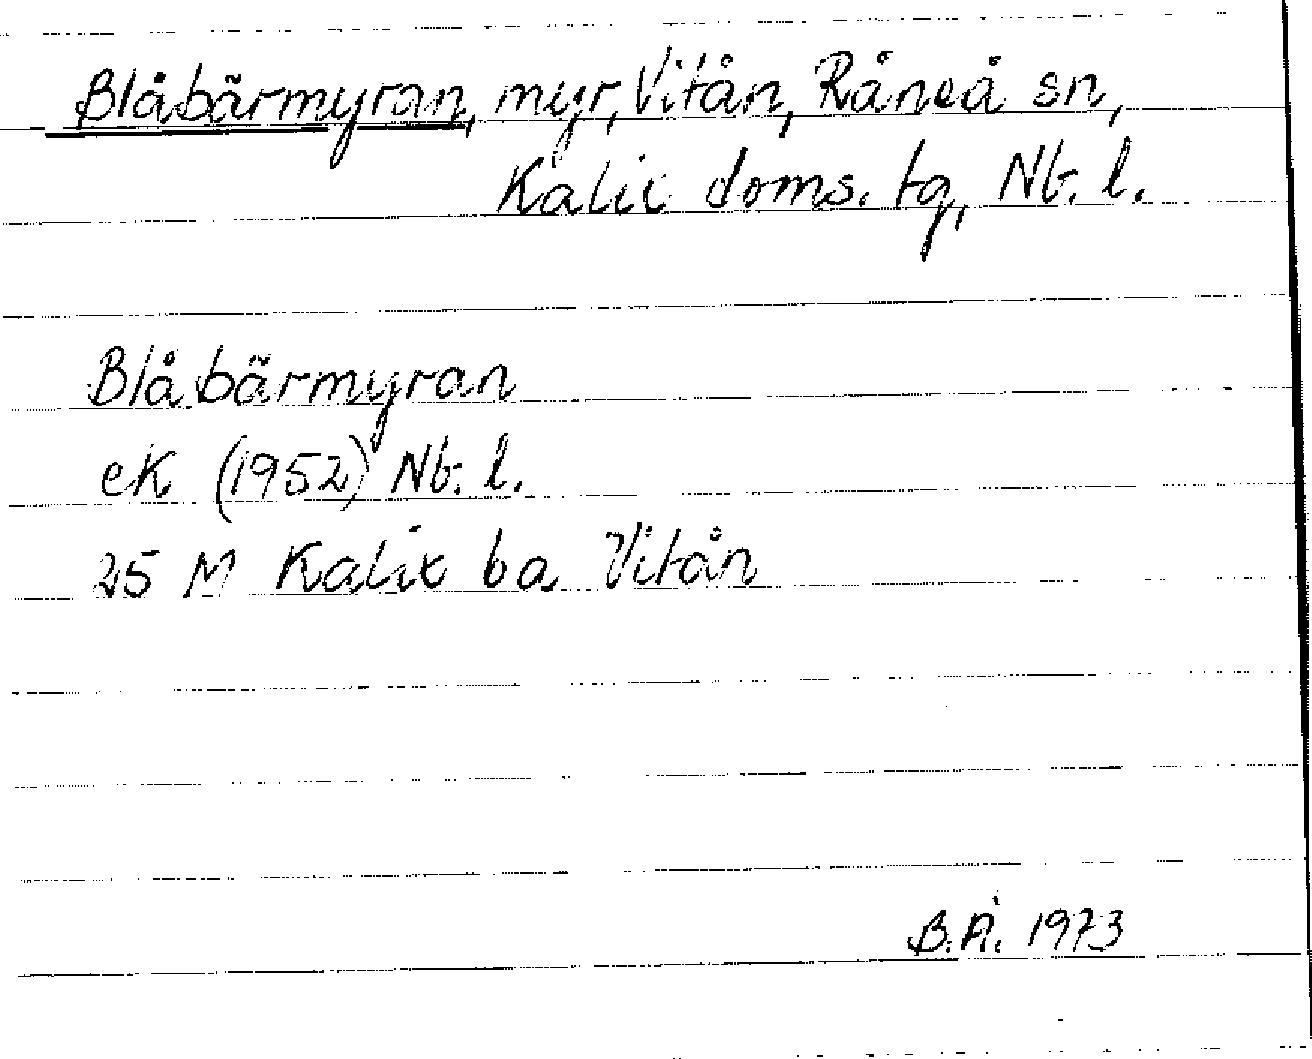 Blåbärmyran, myr, Vitån, Råneå sn,
Kalix doms. tg, Nb. l.
Blåbärmyran
eK (1952) Nb. l.
25 M Kalix ba Vitån
B.Å. 1973